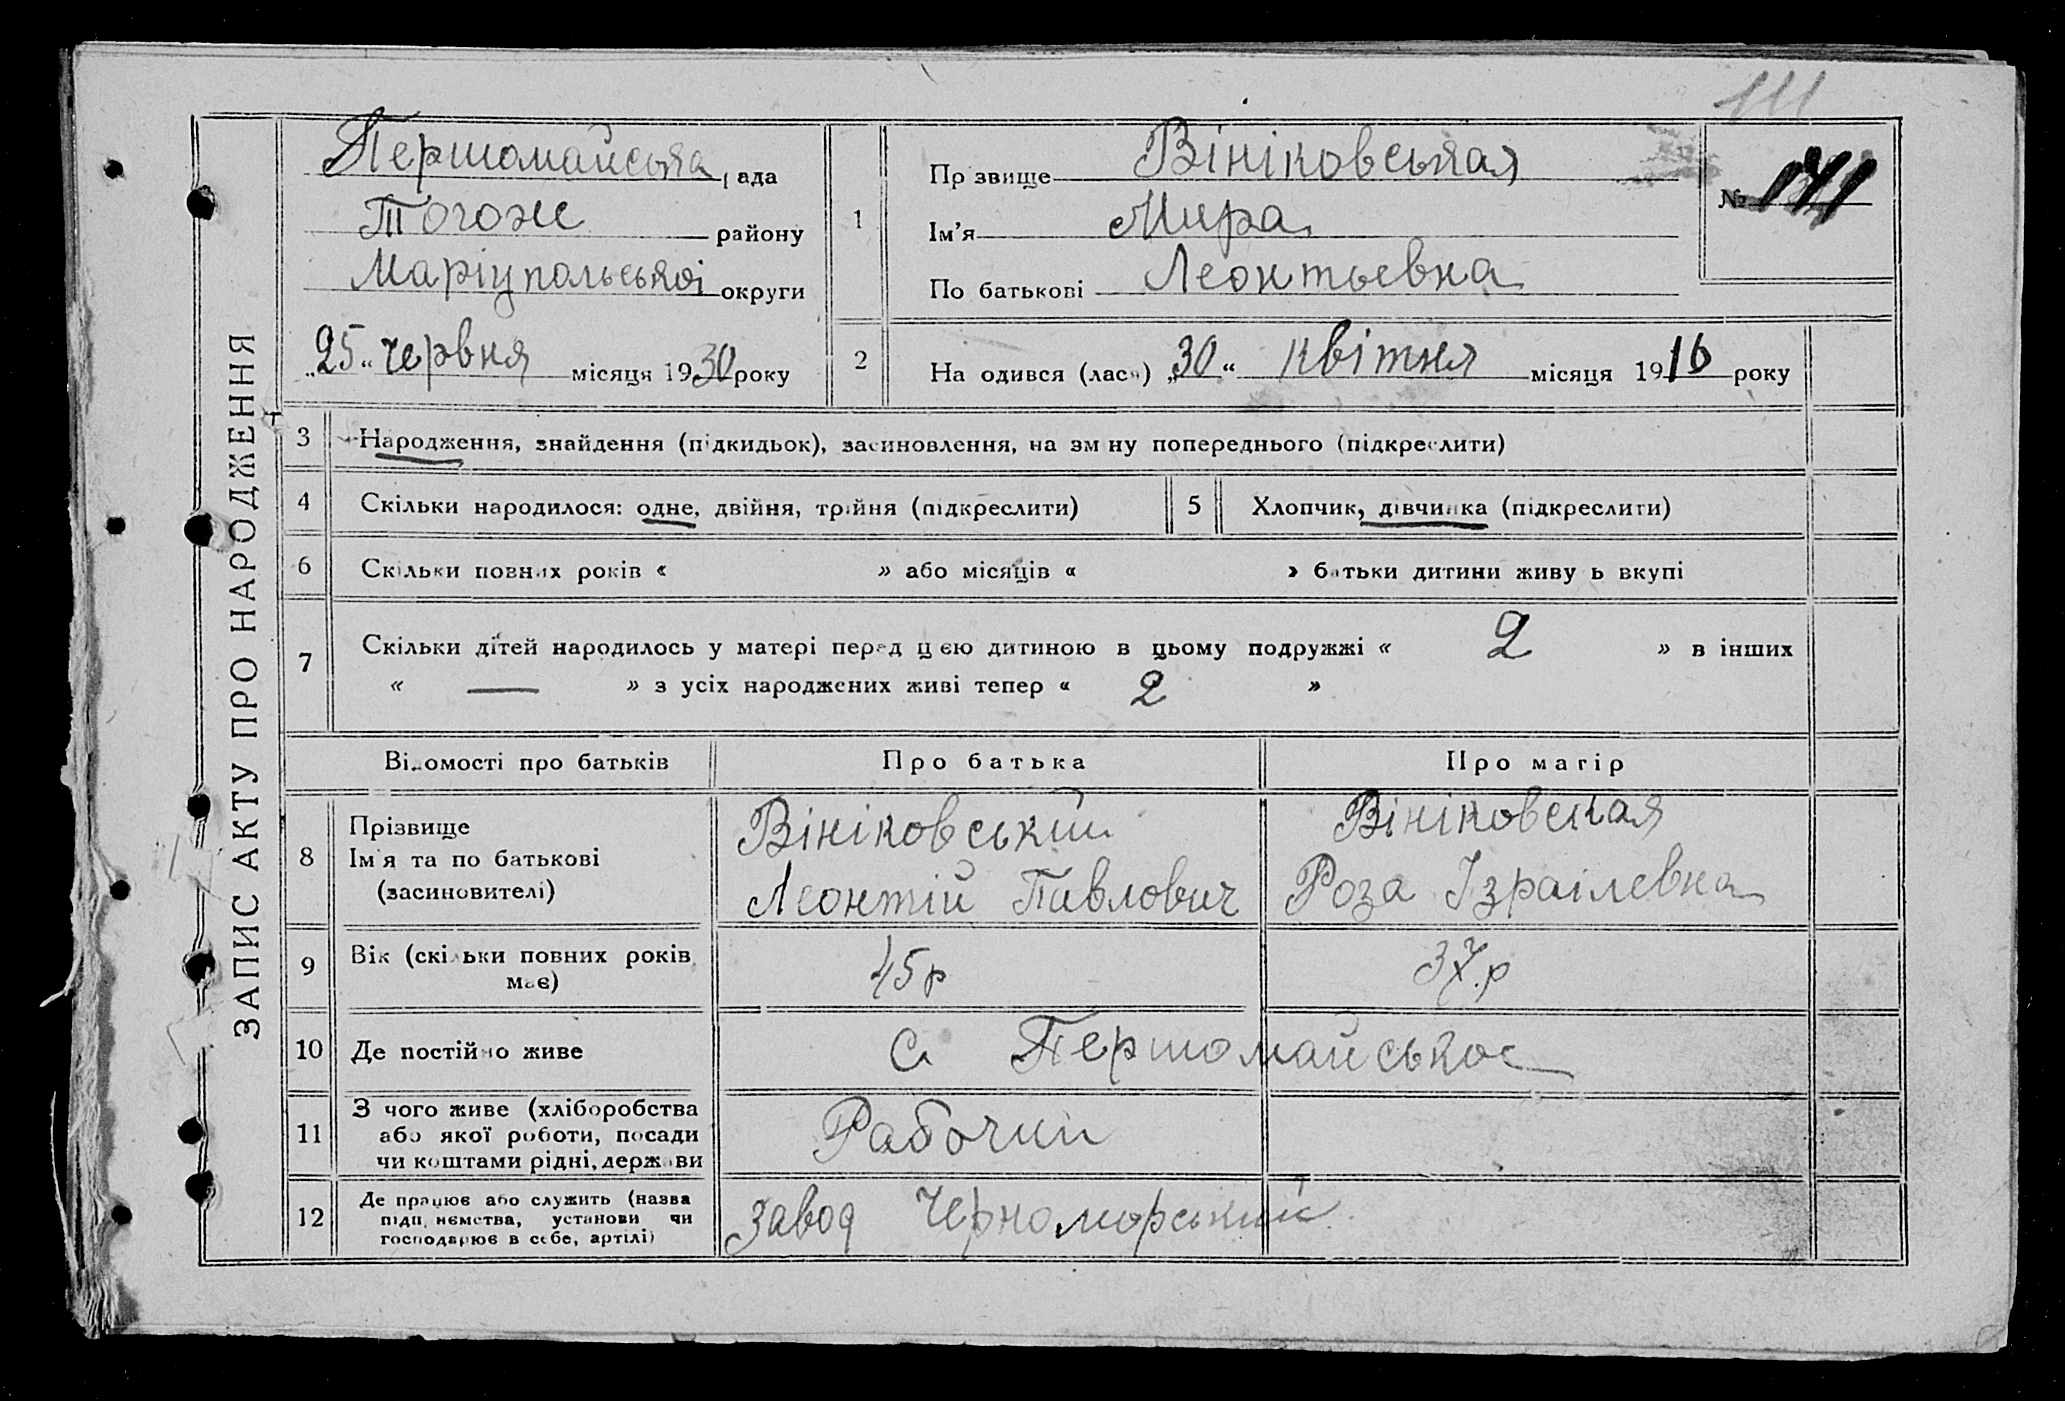 111
ЗАПИС АКТУ ПРО НАРОДЖЕННЯ
Першомайська рада
Тогож району
Маріупольської округи
„25“ червня місяця 1930 року
1
Прізвище Вініковськая
Ім'я Мира
По батькові Леонтьевна
№ 141
2 Народився (лась) „30“ квітня місяця 1916 року
3 Народження, знайдення (підкидьок), засиновлення, на зміну попереднього (підкреслити)
4 Скільки народилося: одне, двійня, трійня (підкреслити) 5 Хлопчик, дівчинка (підкреслити)
6 Скільки повних років « » або місяців « » батьки дитини живуть вкупі
7 Скільки дітей народилось у матері перед цією дитиною в цьому подружжі « 2 » в інших
« — » з усіх народжених живі тепер « 2 »
Відомості про батьків Про батька Про матір
8 Прізвище Ім'я та по батькові (засиновителі)
Вініковський Леонтій Павлович
Вініковская Роза Ізраілевна
9 Вік (скільки повних років має) 45 р 37.р
10 Де постійно живе С Першомайськое
11 З чого живе (хліборобства або якої роботи, посади чи коштами рідні, держави Рабочий
12 Де працює або служить (назва підприємства, установи чи господарює в себе, артілі) завод Черноморський